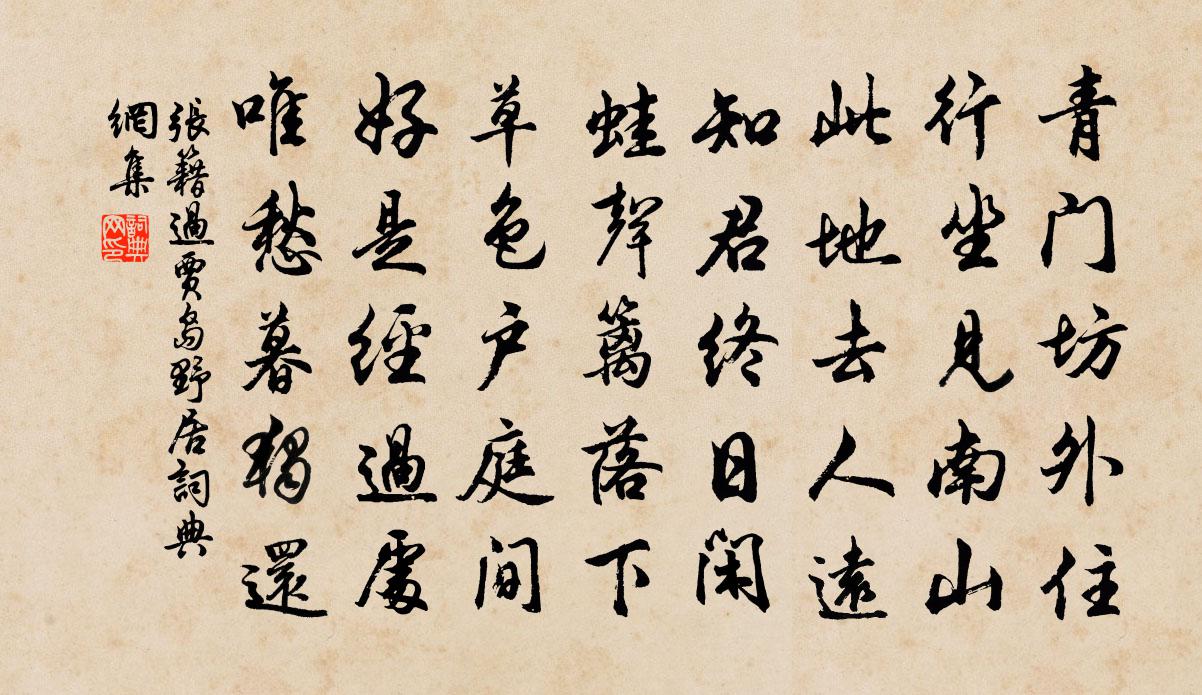 青门坊外住
行坐见南山
此地去人遠
知君终日闲
蛙聲籬落下
草色户庭间
好是經過處
唯愁暮獨還
張籍過賈島野居詞典
網集
詞典
网印